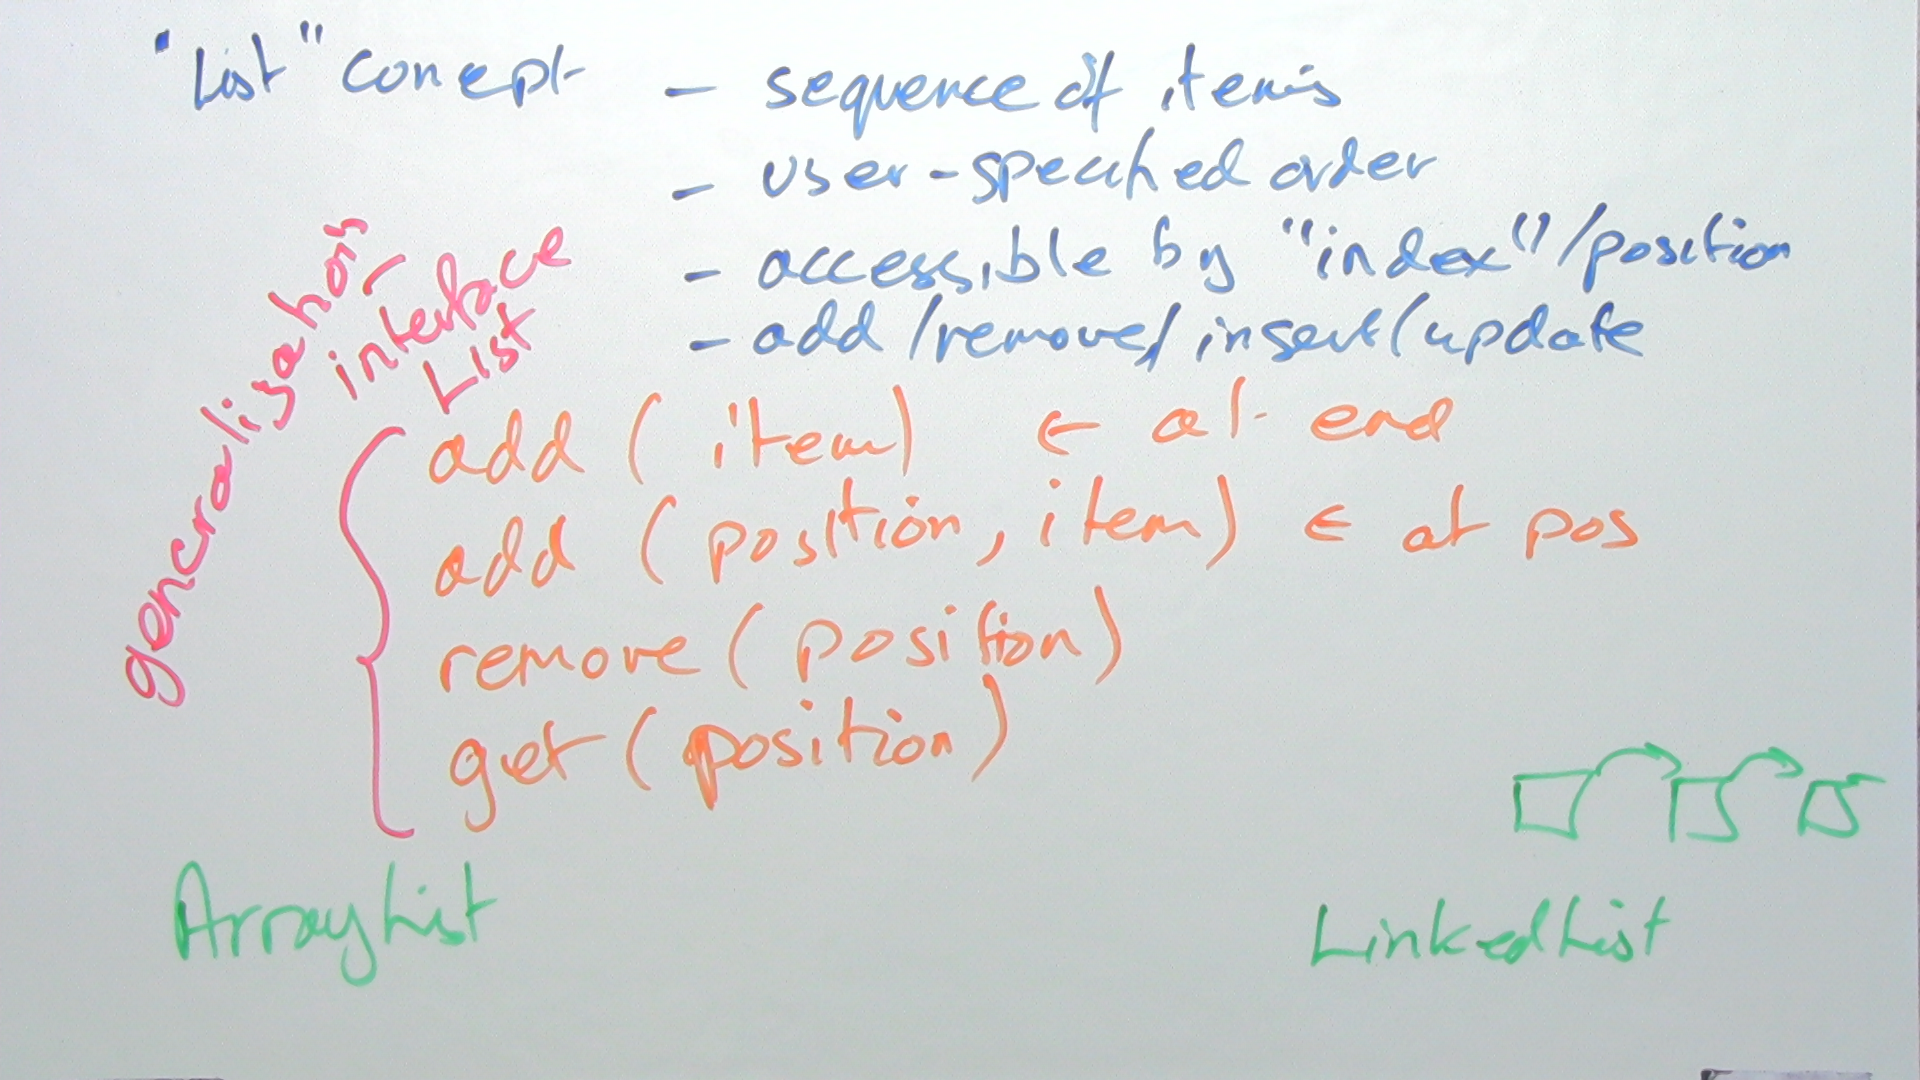 "List" concept - sequence of items
- user-specified order
- accessible by "index"/position
- add/remove/insert/update
generalisation
interface
List
add (item) ← at end
add (position, item) ← at pos
remove (position)
get (position)
ArrayList
LinkedList